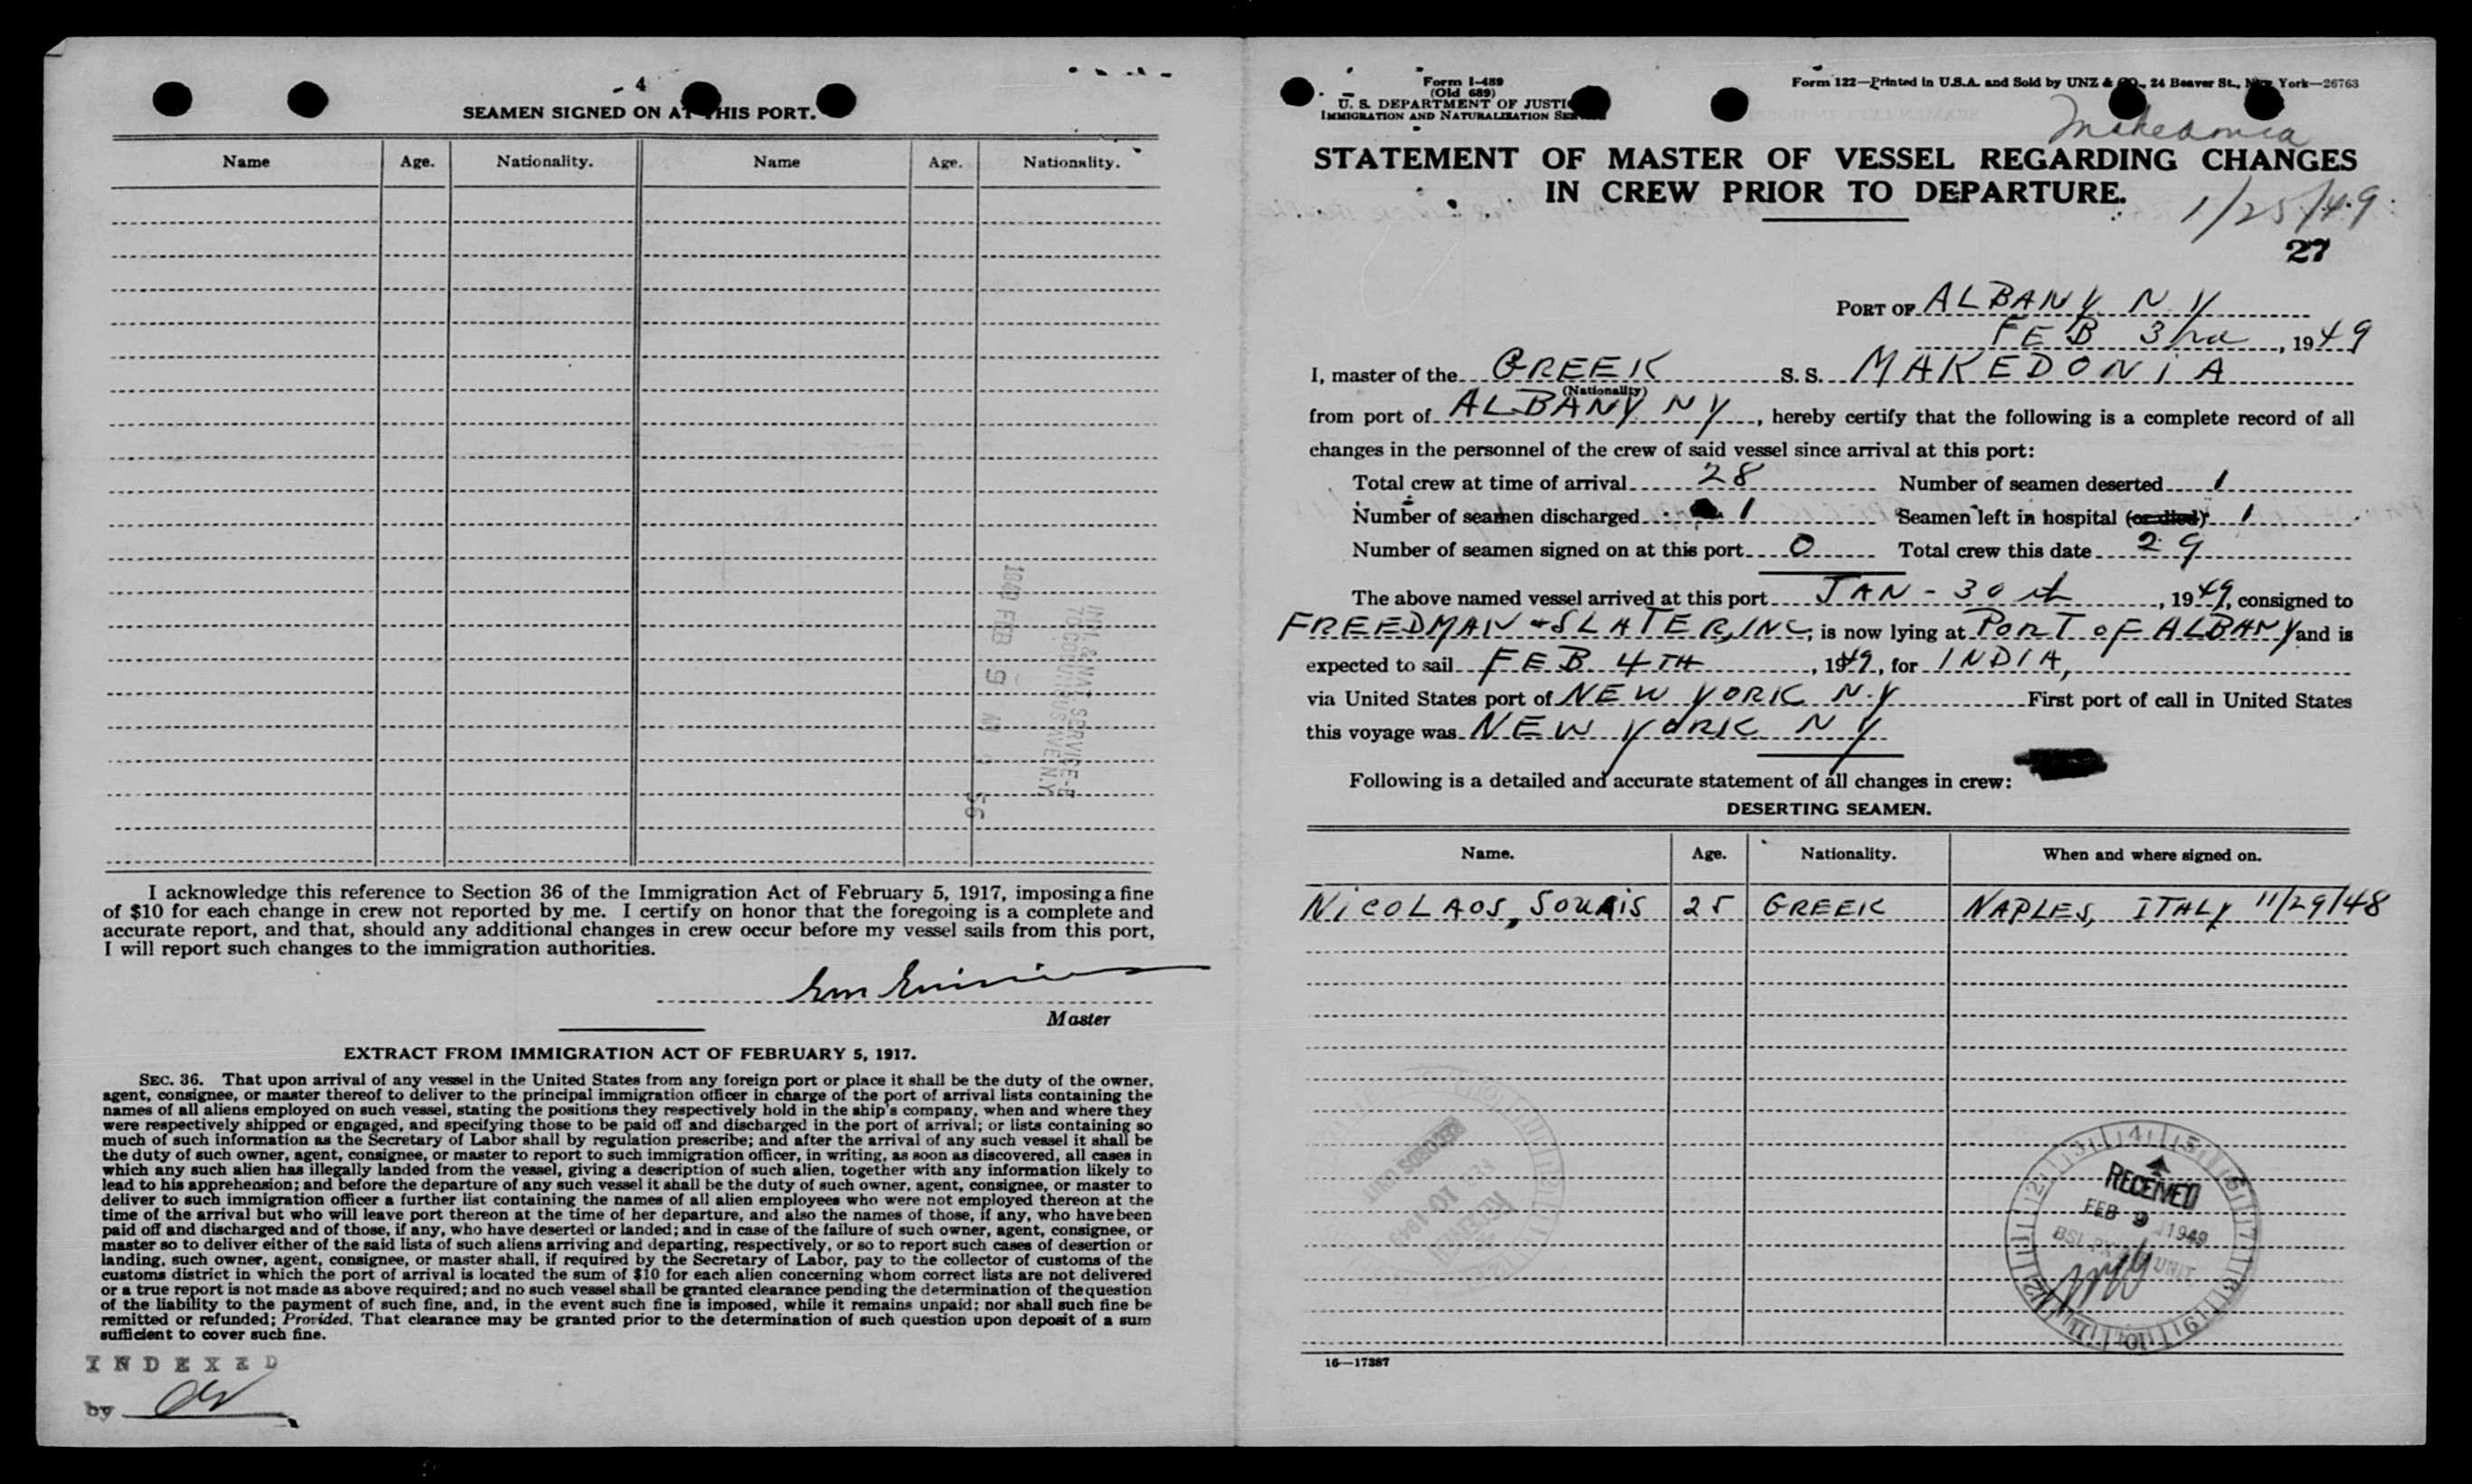 4
SEAMEN SIGNED ON AT THIS PORT.
Name Age. Nationality. Name Age. Nationality.
1949 FEB 9
I acknowledge this reference to Section 36 of the Immigration Act of February 5, 1917, imposing a fine
of $10 for each change in crew not reported by me. I certify on honor that the foregoing is a complete and
accurate report, and that, should any additional changes in crew occur before my vessel sails from this port,
I will report such changes to the immigration authorities.
Master
EXTRACT FROM IMMIGRATION ACT OF FEBRUARY 5, 1917.
SEC. 36. That upon arrival of any vessel in the United States from any foreign port or place it shall be the duty of the owner,
agent, consignee, or master thereof to deliver to the principal immigration officer in charge of the port of arrival lists containing the
names of all aliens employed on such vessel, stating the positions they respectively hold in the ship's company, when and where they
were respectively shipped or engaged, and specifying those to be paid off and discharged in the port of arrival; or lists containing so
much of such information as the Secretary of Labor shall by regulation prescribe; and after the arrival of any such vessel it shall be
the duty of such owner, agent, consignee, or master to report to such immigration officer, in writing, as soon as discovered, all cases in
which any such alien has illegally landed from the vessel, giving a description of such alien, together with any information likely to
lead to his apprehension; and before the departure of any such vessel it shall be the duty of such owner, agent, consignee, or master to
deliver to such immigration officer a further list containing the names of all alien employees who were not employed thereon at the
time of the arrival but who will leave port thereon at the time of her departure, and also the names of those, if any, who have been
paid off and discharged and of those, if any, who have deserted or landed; and in case of the failure of such owner, agent, consignee, or
master so to deliver either of the said lists of such aliens arriving and departing, respectively, or so to report such cases of desertion or
landing, such owner, agent, consignee, or master shall, if required by the Secretary of Labor, pay to the collector of customs of the
customs district in which the port of arrival is located the sum of $10 for each alien concerning whom correct lists are not delivered
or a true report is not made as above required; and no such vessel shall be granted clearance pending the determination of the question
of the liability to the payment of such fine, and, in the event such fine is imposed, while it remains unpaid; nor shall such fine be
remitted or refunded; Provided, That clearance may be granted prior to the determination of such question upon deposit of a sum
sufficient to cover such fine.
INDEXED
by
Form I-489
(Old 689)
U. S. DEPARTMENT OF JUSTICE
IMMIGRATION AND NATURALIZATION SERVICE
Form 122—Printed in U.S.A. and Sold by UNZ & CO., 24 Beaver St., New York—26763
Makedonia
STATEMENT OF MASTER OF VESSEL REGARDING CHANGES
IN CREW PRIOR TO DEPARTURE.
1/25/49
27
PORT OF ALBANY N Y
FEB 3rd, 1949
I, master of the GREEK S. S. MAKEDONIA
(Nationality)
from port of ALBANY NY, hereby certify that the following is a complete record of all
changes in the personnel of the crew of said vessel since arrival at this port:
Total crew at time of arrival 28 Number of seamen deserted 1
Number of seamen discharged 1 Seamen left in hospital (or died) 1
Number of seamen signed on at this port 0 Total crew this date 29
The above named vessel arrived at this port JAN - 30 th, 1949, consigned to
FREEDMAN & SLATER, INC, is now lying at PORT OF ALBANY and is
expected to sail FEB 4TH, 1949, for INDIA,
via United States port of NEW YORK N.Y First port of call in United States
this voyage was NEW YORK N Y
Following is a detailed and accurate statement of all changes in crew:
DESERTING SEAMEN.
Name. Age. Nationality. When and where signed on.
NICOLAOS, SOURIS 25 GREEK NAPLES, ITALY 11/29/48
RECORDS UNIT
FEB 10 1949
RECEIVED
RECEIVED
FEB 9 1949
UNIT
16—17387